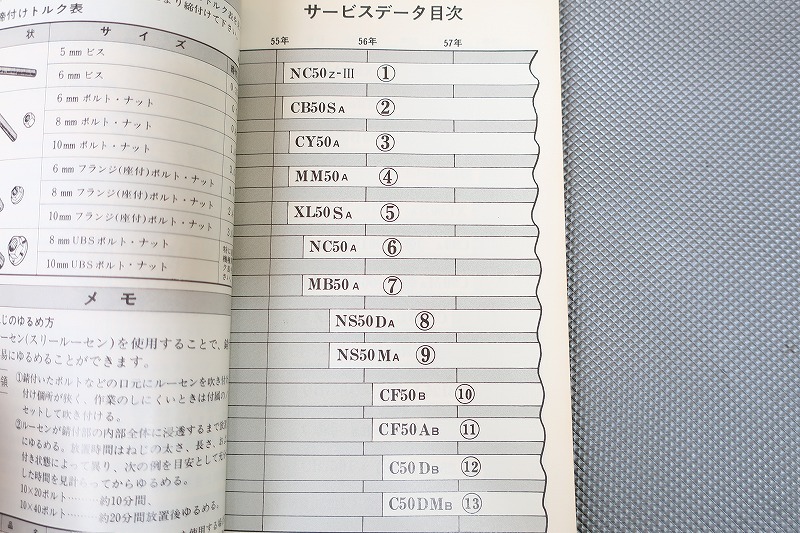 締付けトルク表
状 サイズ
5mmビス
6mmビス
6mmボルト・ナット
8mmボルト・ナット
10mmボルト・ナット
6mmフランジ(座付)ボルト・ナット
8mmフランジ(座付)ボルト・ナット
10mmフランジ(座付)ボルト・ナット
8mmUBSボルト・ナット
10mmUBSボルト・ナット
メモ
じのゆるめ方
ーセン(スリールーセン)を使用することで、錆
易にゆるめることができます。
領
①錆付いたボルトなどの口元にルーセンを吹き付
付け個所が狭く、作業のしにくいときは付属の
セットして吹き付ける。
②ルーセンが錆付部の内部全体に浸透するまで放
にゆるめる。放置時間はねじの太さ、長さ、お
付き状態によって異り、次の例を目安として
した時間を見計らってからゆるめる。
10×20ボルト………約10分間、
10×40ボルト………約20分間放置後ゆるめる。
サービスデータ目次
55年 56年 57年
NC50Z-III ①
CB50SA ②
CY50A ③
MM50A ④
XL50SA ⑤
NC50A ⑥
MB50A ⑦
NS50DA ⑧
NS50MA ⑨
CF50B ⑩
CF50AB ⑪
C50DB ⑫
C50DMB ⑬